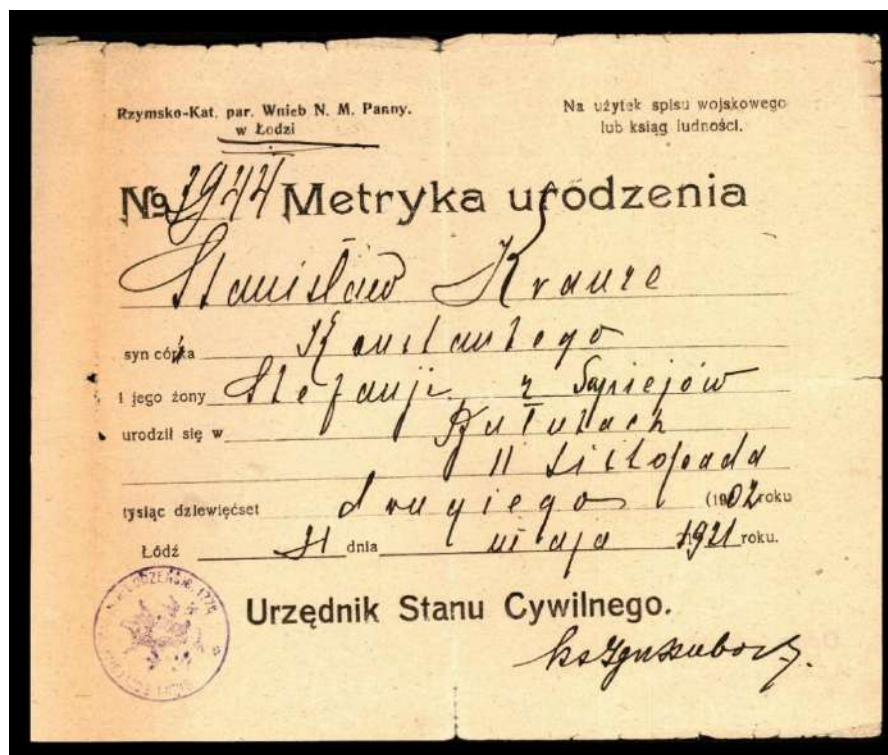 Rzymsko-Kat. par. Wnieb N. M. Panny.
w Łodzi
Na użytek spisu wojskowego
lub ksiąg ludności.
№ 1944 Metryka urodzenia
Stanisław Krauze
syn córka Konstantego
i jego żony Stefanji z Sapiejów
urodził się w Bałutach
11 Listopada
tysiąc dziewięćset drugiego (1902 roku
Łódź 21 dnia maja 1921 roku.
Urzędnik Stanu Cywilnego.
ks